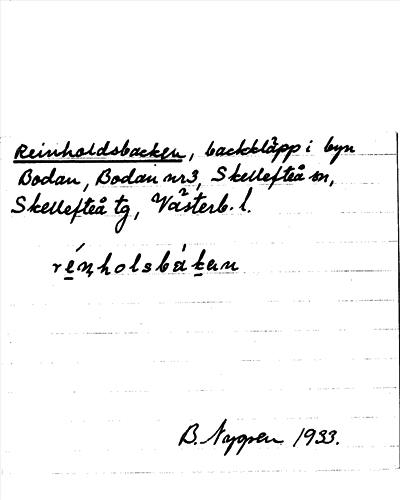 Reinholdsbacken, backkläpp i byn
Bodan, Bodan nr 3, Skellefteå sn,
Skellefteå tg, Västerb. l.
B. Nyppen 1933.